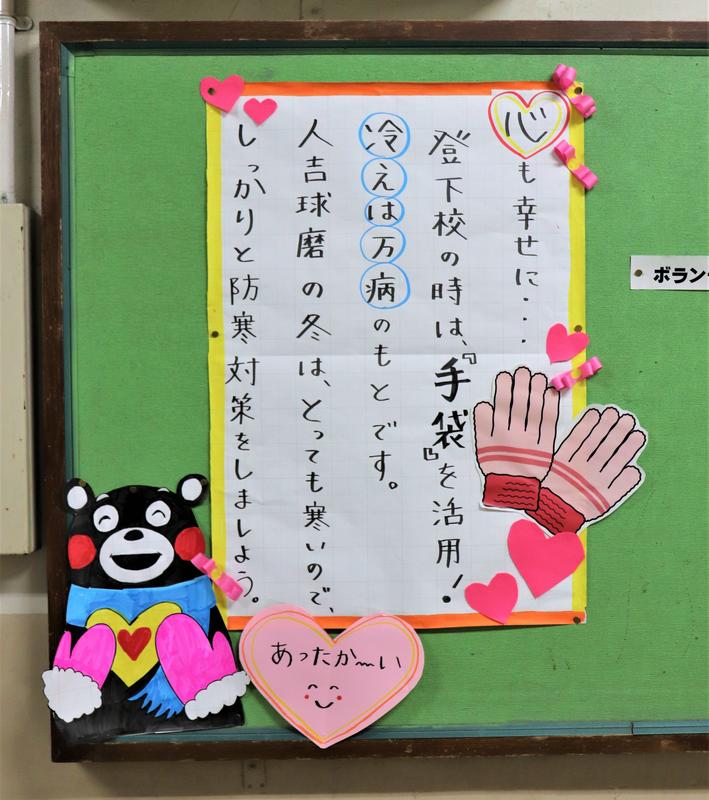 心も幸せに・・・
登下校の時は、『手袋』を活用！
冷えは万病のもとです。
人吉球磨の冬は、とっても寒いので、
しっかりと防寒対策をしましょう。
あったか〜い
ボラン